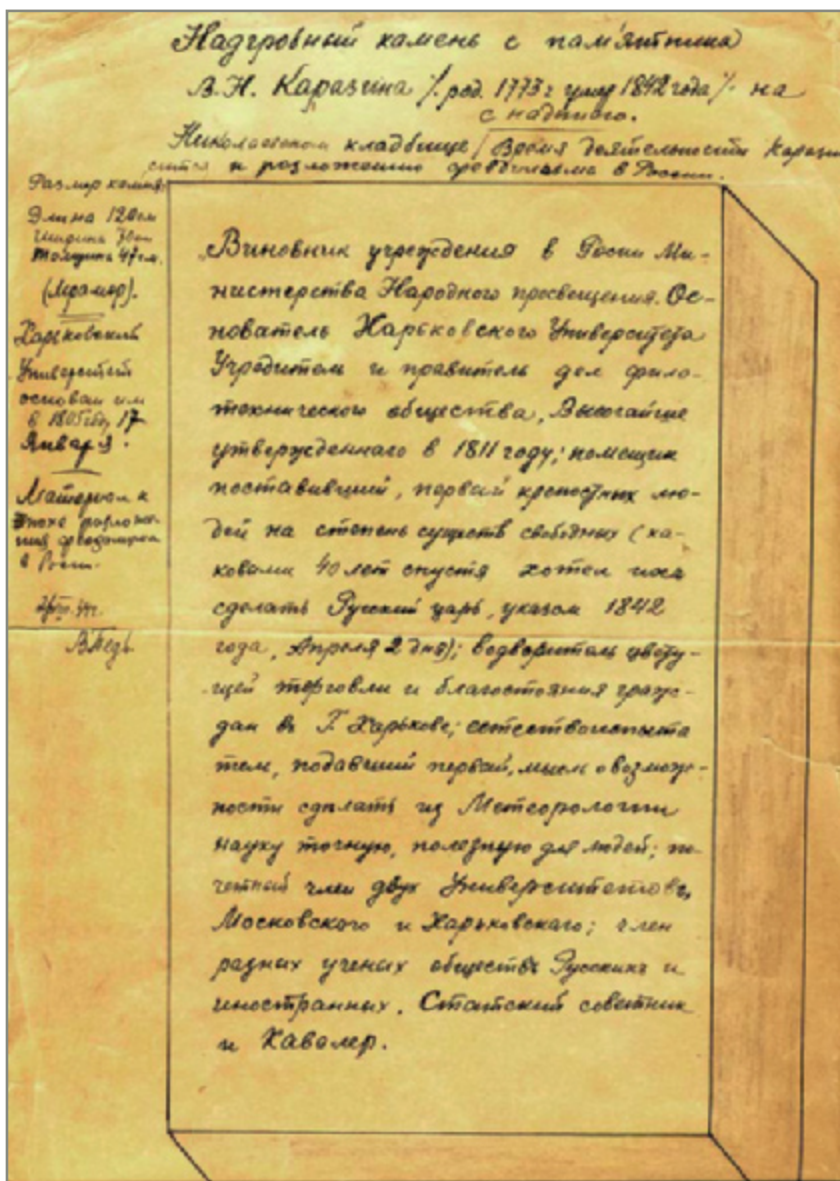 Надгробный камень с пам'ятника
В.Н. Каразина /. род. 1773 г умер 1842 года /. на
с надписью.
Николаевском кладбище / Время деятельности Карази
сится к разложению феодализма в России.
Размер камня:
Длина 120см
Ширина 70см
Толщина 47см.
(Мрамор).
Харьковский
Университет
основан им
в 1805 году 17
Января.
Материал к
эпохе разложе-
ния феодализма
в России.
В Педь
Виновник учреждения в Росии Ми-
нистерства Народного просвещения. Ос-
нователь Харьковского Университета
Учредитель и правитель дел фило-
технического общества, Высочайше
утвержденнаго в 1811 году; помещик
поставивший, первый крепостных лю-
дей на степень существ свободных (ка-
ковыми 40 лет спустя хотел их
сделать Русский царь, указом 1842
года, Апреля 2 дня); водворитель цвету-
щей торговли и благостояния граж-
дан въ Г. Харькове; естествоиспыта
тель, подавший первый, мысль о возмож-
ности сделать из Метеорологии
науку точную, полезную для людей; по-
четный член двух Университетовъ,
Московского и Харьковскаго; член
разных ученых обществъ Русскихъ и
иностранных. Статский советник
и Кавалер.